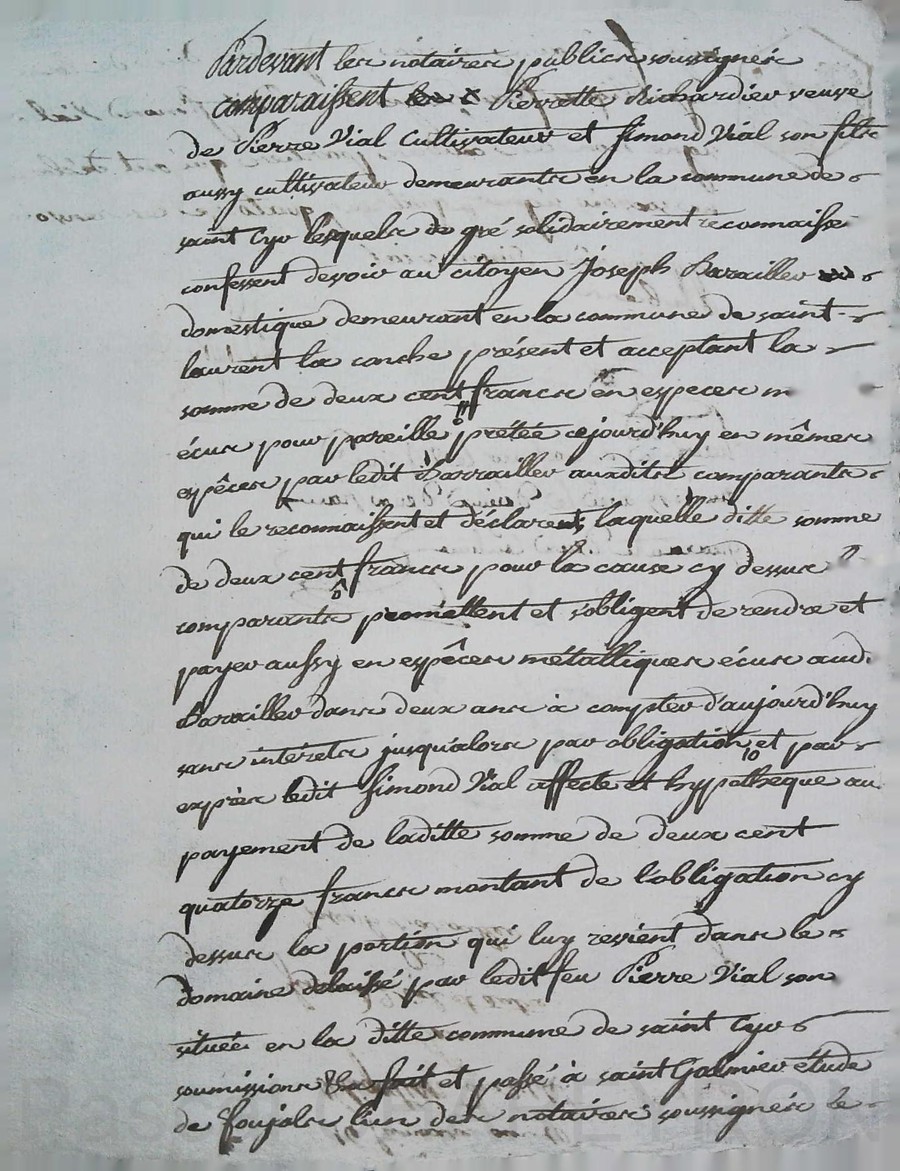 Pardevant les notaires publics soussignés
comparaissent Pierrette Richardier veuve
de Pierre Vial Cultivateur et Simond Vial son fils
aussy cultivateur demeurants en la commune de
saint Cyr lesquels de gré solidairement reconnaisse
confessent devoir au citoyen Joseph Barailler
domestique demeurant en la commune de saint
laurent la conche présent et acceptant la
somme de deux cent francs en especes
écus pour pareille prétée cejourd'huy en mêmes
espêces par ledit Barrailler auxdits comparants
qui le reconnaissent et déclarent, laquelle ditte somme
de deux cent francs pour la cause cy dessus
comparants promettent et s'obligent de rendre et
payer aussy en espêces métalliques écus aud.
Barailler dans deux ans à compter d'aujourd'huy
sans intérêts jusqu'alors par obligation et par
exprès ledit Simond Vial affecte et hypothèque au
payement de laditte somme de deux cent
quatorze francs montant de l'obligation cy
dessus la portion qui luy revient dans le
domaine delaissé par ledit feu Pierre Vial son
située en la ditte commune de saint Cyr
soumissions fait et passé à saint Galmier étude
de foujols l'un des notaires soussignés le